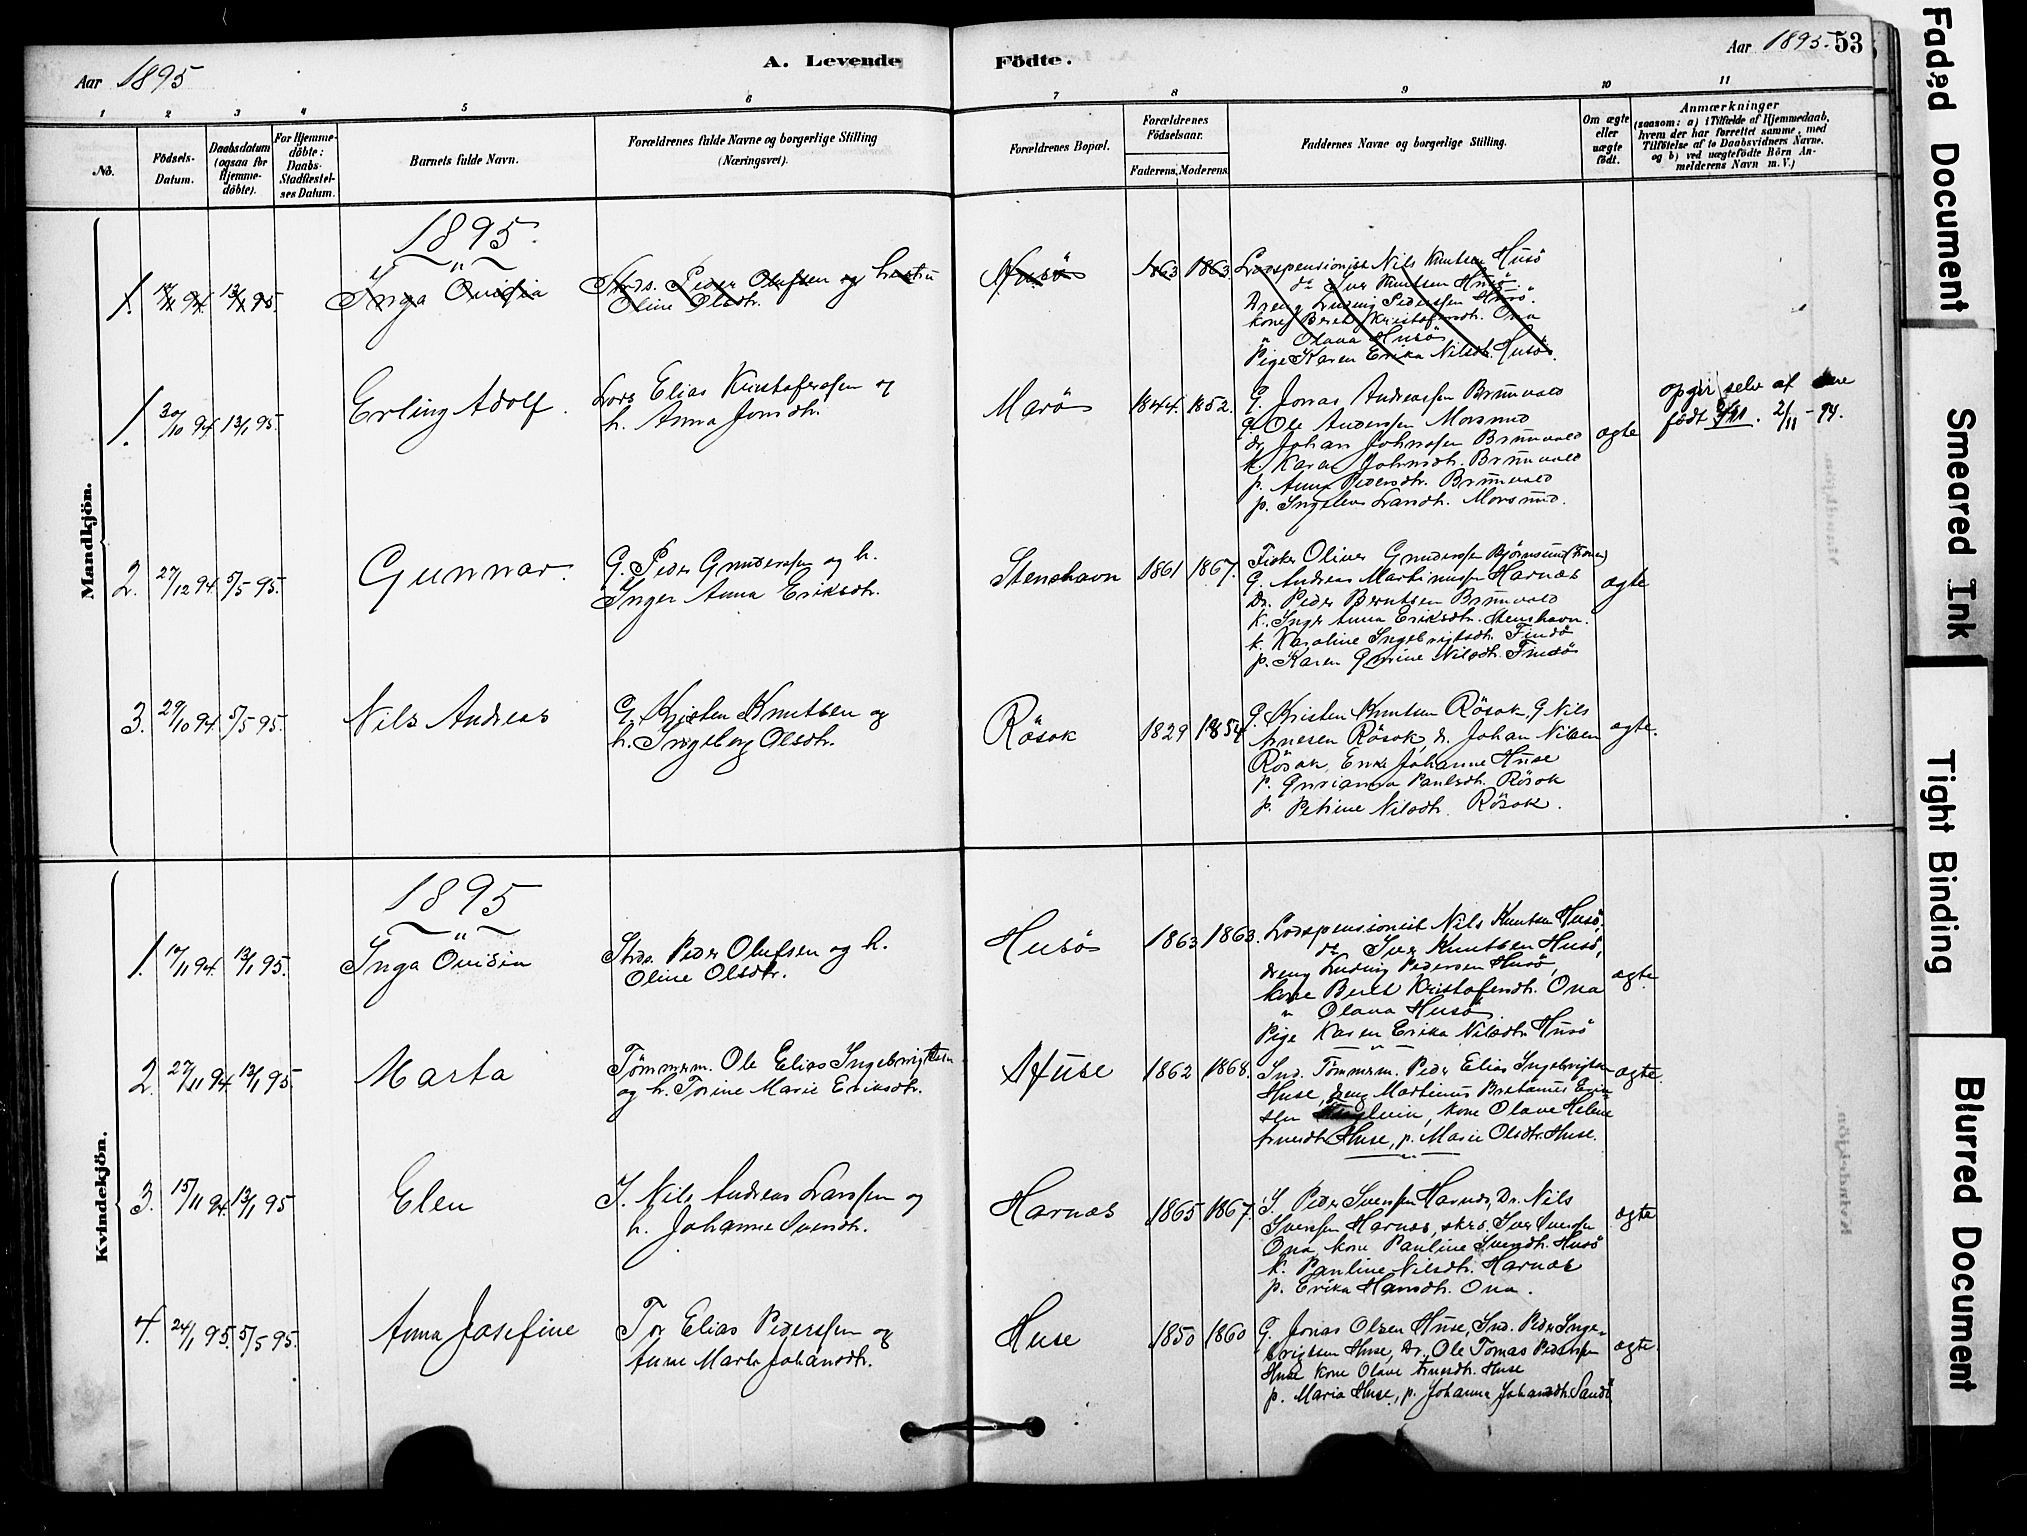 Aar 1895
A. Levende Födte.
Aar 1895. 53
1 2 3 4 5 6 7 8 9 10 11
No.
Födsels-Datum.
Daabsdatum (ogsaa for Hjemmedöbte).
For Hjemmedöbte: Daabs-Stadfæstelses Datum.
Barnets fulde Navn.
Forældrenes fulde Navne og borgerlige Stilling (Næringsvei).
Forældrenes Bopæl.
Forældrenes Födselsaar.
Faderens. Moderens.
Faddernes Navne og borgerlige Stilling.
Om ægte eller uægte födt.
Anmærkninger
(saasom: a) i Tilfælde af Hjemmedaab, hvem der har forrettet samme, med Tilföielse af to Daabsvidners Navne, og b) ved uægtefödte Börn Anmelderens Navn m. V.)
Mandkjön.
1895.
1. 17/11 94 13/1 95. Inga Ovidia
Strds. Peder Olufsen og hustru
Oline Olsdtr.
Husö 1863 1863.
Lodspensionist Nils Knutsen Husö
do Iver Knutsen Husö
Dreng Ludvig Pedersen Husö.
kone Beret Kristofersdtr. Ona
" Olava Husö
Pige Karen Erika Nilsdtr. Husö.
1. 30/10 94 13/1 95. Erling Adolf.
Lods Elias Kristofersen og
h. Anna Jonsdtr.
Marö 1844. 1852.
G. Jonas Andreassen Brunvold
g. Ole Anderssen Morsund
dr. Johan Johnsen Brunvold
k. Karen Johnsdtr. Brunvold
p. Anna Pedersdtr. Brunvold
p. Ingeleiv Larsdtr. Morsund.
ægte
selv af
födt 2/11 - 94.
2. 27/12 94 5/5 95. Gunnar.
G. Peder Gundersen og h.
Inger Anna Eriksdtr.
Stenshavn 1861 1867.
Fisker Oliver Gundersen Björnsund
G. Andreas Martinussen Harnæs
Dr. Peder Berntsen Brunvold
k. Inger Anna Eriksdtr. Stenshavn.
k. Karoline Ingebrigtsdtr. Findö
p. Karen Gurine Nilsdtr. Findö
ægte
3. 29/10 94 5/5 95. Nils Andreas
G. Kristen Knutsen og
h. Ingeborg Olsdtr.
Rösok 1829 1854
G. Kristen Knutsen Rösok, G Nils
Arnesen Rösok, d. Johan Nilsen
Rösok, Enke Johanne Huse
p. Gurianna Paulsdtr. Rösok
p. Petrine Nilsdtr. Rösok.
ægte.
Kvindekjön.
1895
1. 17/11 94. 13/1 95. Inga Ovidia
Strds. Peder Olufsen og h.
Oline Olsdtr.
Husö 1863 1863.
Lodspensionist Nils Knutsen Husö,
do Iver Knutsen Husö,
dreng Ludvig Pedersen Husö,
kone Beret Kristofersdtr. Ona
" Olava Husö.
Pige Karen Erika Nilsdtr. Husö
ægte.
2. 27/11 94 13/1 95. Marta
Tömmerm. Ole Elias Ingebrigtsen
og h. Trine Marie Eriksdtr.
Huse 1862 1868.
Ind. Tömmerm. Peder Elias Ingebrigtsen
Huse, dreng Martinus Bretanus
kone Olave Helene
Arnesdtr. Huse, p. Marie Olsdtr. Huse.
ægte.
3. 15/11 94. 13/1 95 Elen
I. Nils Andreas Larssen og
h. Johanne Svendtr.
Harnæs 1865 1867.
I. Peder Svensen Harnæs, Dr. Nils
Svensen Harnæs, strds. Iver Svensen
Ona, kone Pauline Svendtr. Husö
k. Pauline Nilsdtr. Harnæs
p. Erika Hansdtr. Ona.
ægte
4. 24/1 95. 5/5 95. Anna Josefine
For Elias Pederssen og
Anne Marta Johansdtr.
Huse 1850 1860
G. Jonas Olsen Huse, Ind. Peder Inge-
brigtsen Huse, Dr. Ole Tomas Pederssen
Huse kone Olave Arnesdtr. Huse
p. Maria Huse, p. Johanna Johansdtr. Sandö
ægte.
Faded Document
Smeared Ink
Tight Binding
Blurred Document